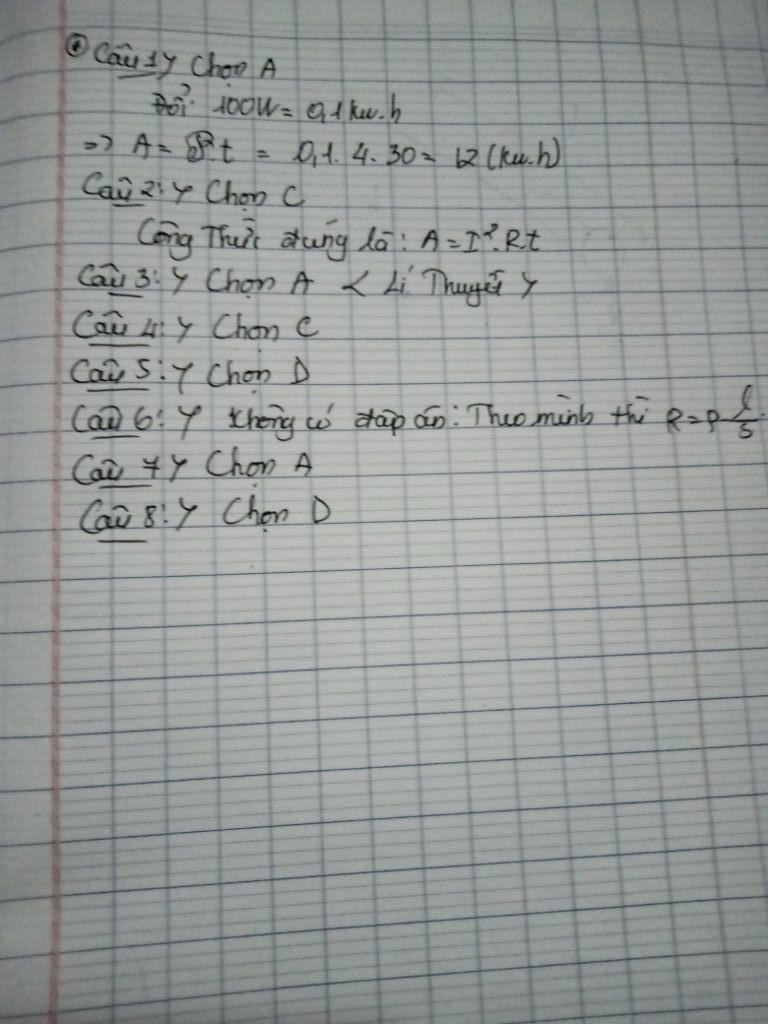 Câu 1> Chọn A
Đổi: 100W = 0,1 kw.h
=> A = P.t = 0,1. 4. 30 = 12 (kw.h)
Câu 2:> Chọn C
Công Thức đúng là: A = I².R.t
Câu 3:> Chọn A < Lí Thuyết >
Câu 4:> Chọn C
Câu 5:> Chọn D
Câu 6:> Không có đáp án: Theo mình thì R = ρ l/S
Câu 7> Chọn A
Câu 8:> Chọn D